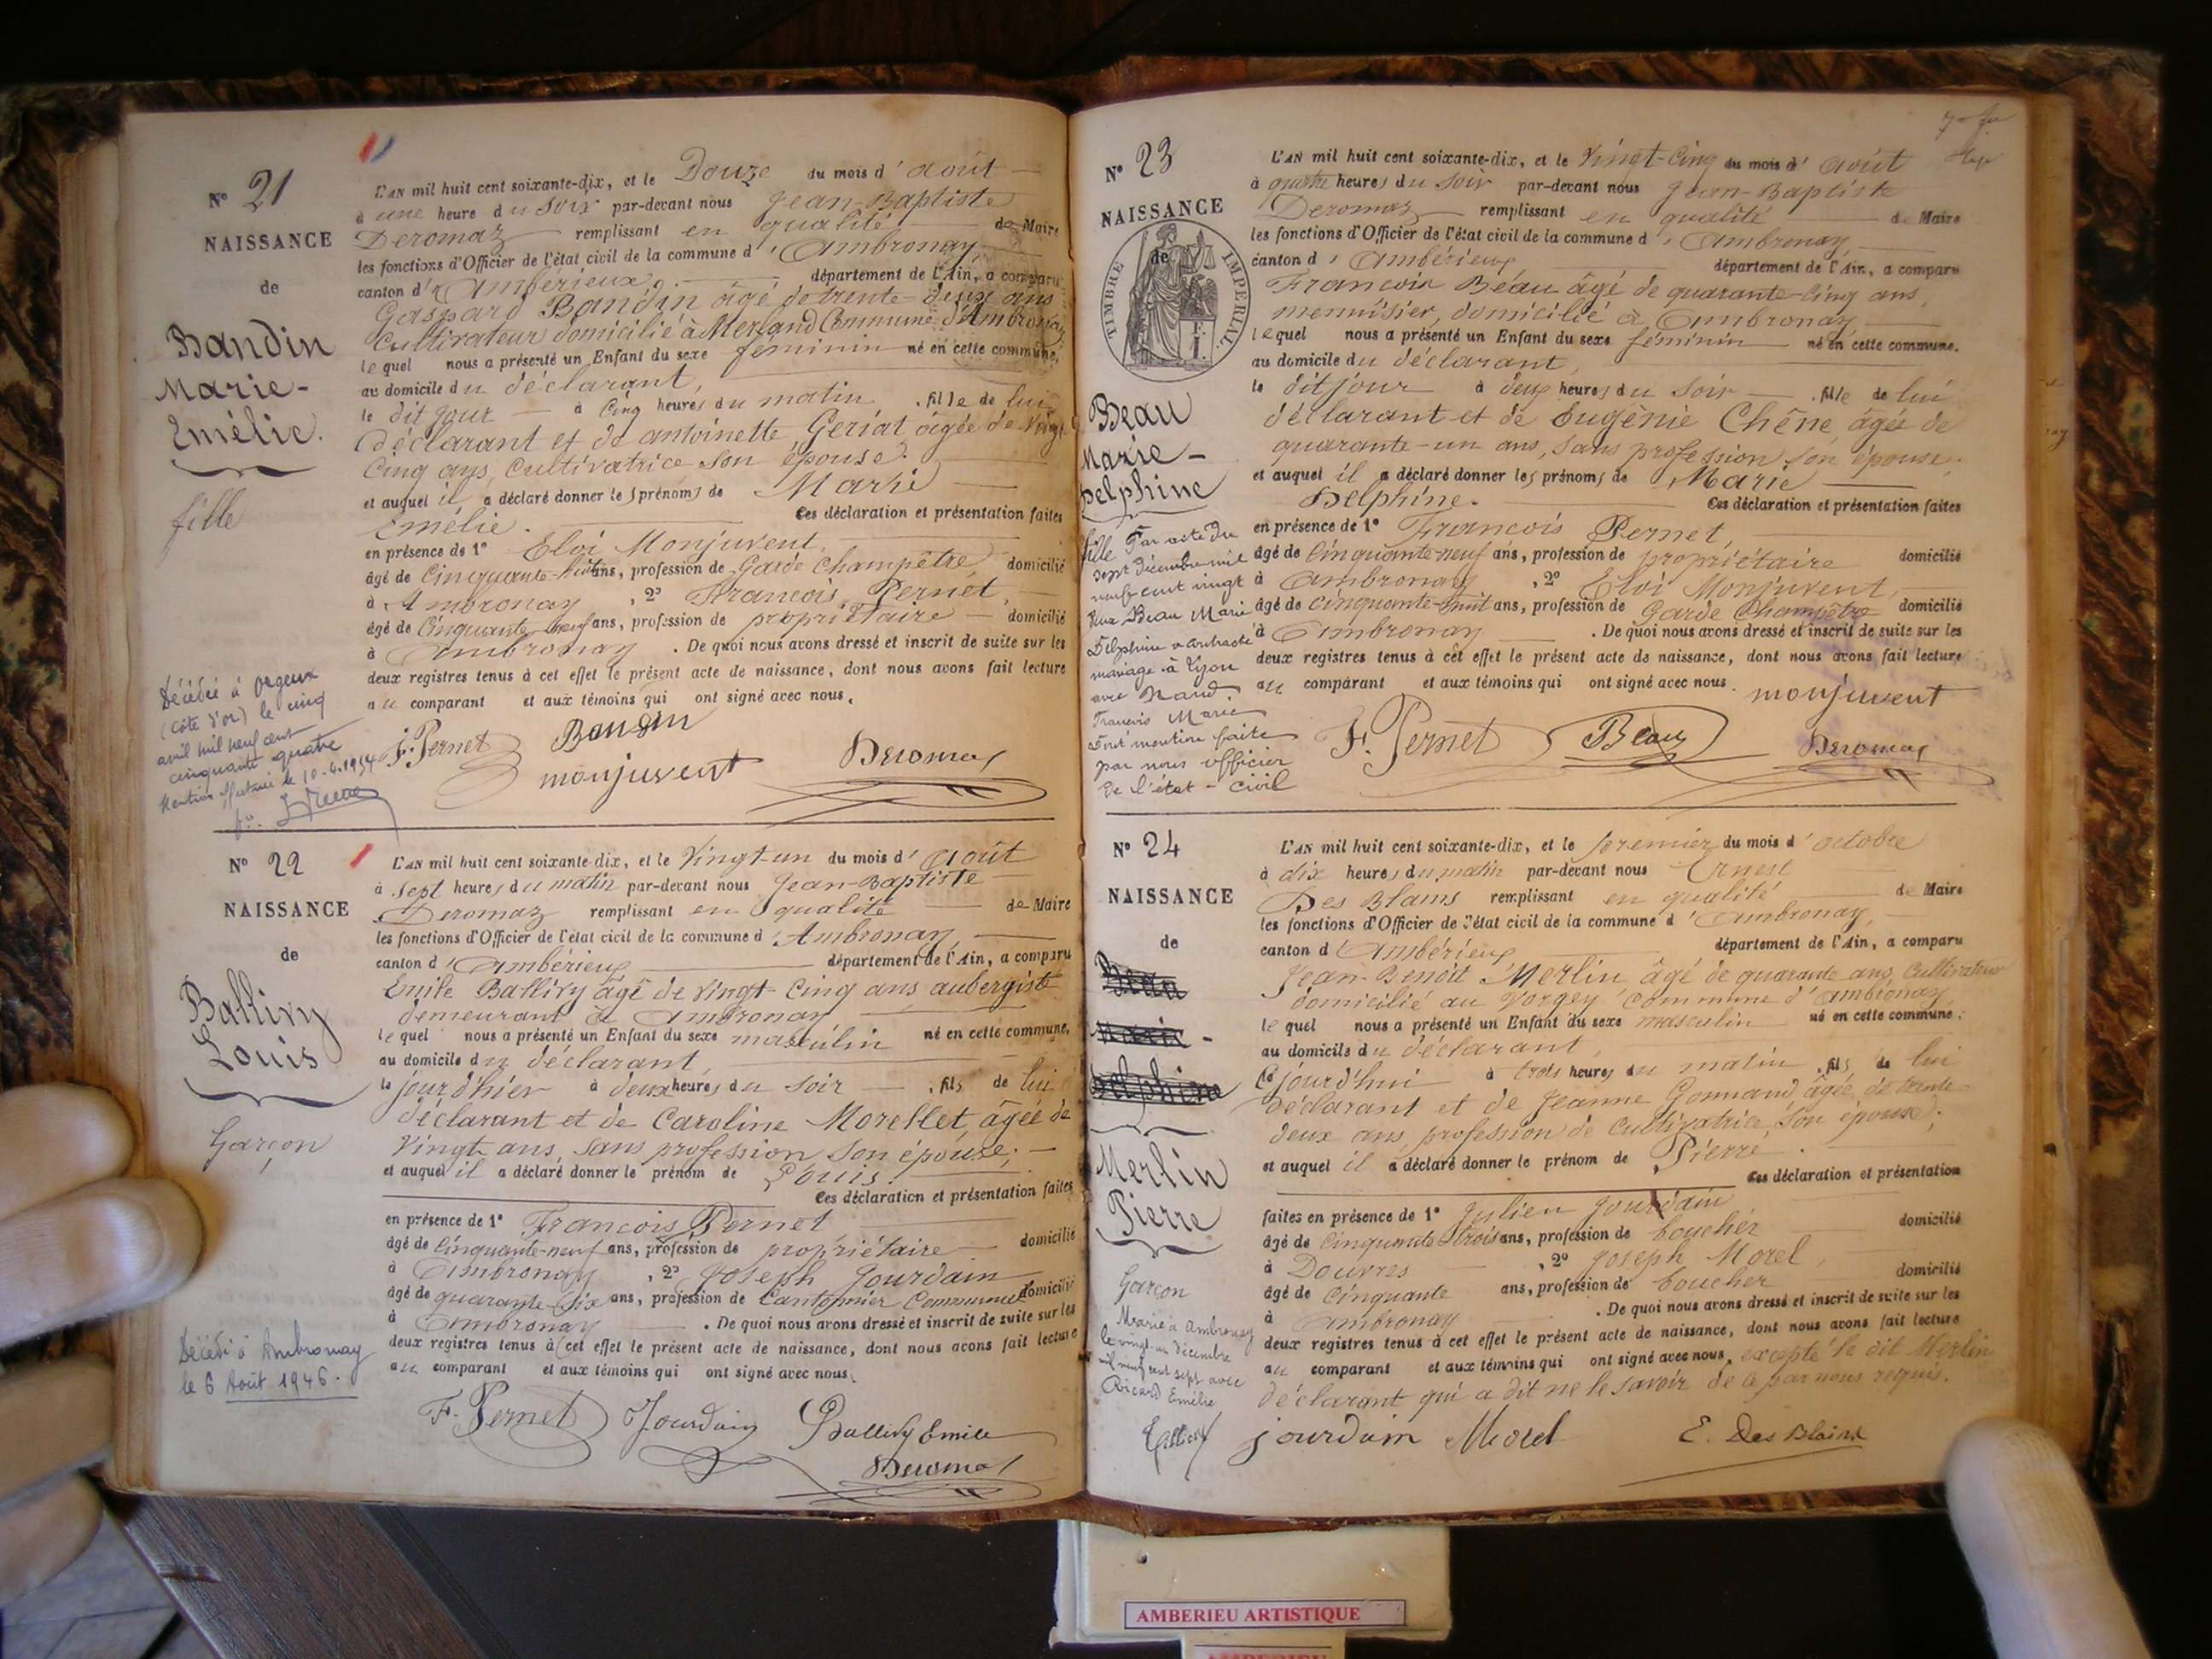 N° 21
NAISSANCE
de
Bandin
Marie-
Emélie.
fille
Décédée à Orgeux
(Côte d'or) le cinq
avril mil neuf cent
cinquante quatre
L'AN mil huit cent soixante-dix, et le Douze du mois d'août
à une heure du soir par-devant nous Jean-Baptiste
Deromaz remplissant en qualité de Maire
les fonctions d'Officier de l'état civil de la commune d'Ambronay
canton d'Ambérieux. département de l'Ain, a comparu
Gaspard Bandin âgé de trente-deux ans
Cultivateur domicilié à Merland Commune d'Ambronay
lequel nous a présenté un Enfant du sexe féminin né en cette commune,
au domicile du déclarant,
le dit jour à Cinq heures du matin, fille de lui
Déclarant et de antoinette Geriat âgée de Vingt
Cinq ans, Cultivatrice son épouse.
et auquel il a déclaré donner les prénoms de Marie
Emélie. Ces déclaration et présentation faites
en présence de 1° Eloi Monjuvent,
âgé de Cinquante-huit ans, profession de Garde Champêtre domicilié
à Ambronay, 2° François Pernet,
âgé de Cinquante neuf ans, profession de propriétaire domicilié
à Ambronay. De quoi nous avons dressé et inscrit de suite sur les
deux registres tenus à cet effet le présent acte de naissance, dont nous avons fait lecture
au comparant et aux témoins qui ont signé avec nous.
F. Pernet Bandin
monjuvent Deromaz
N° 22
NAISSANCE
de
Ballivy
Louis
Garçon
Décédé à Ambronay
le 6 Août 1946.
L'AN mil huit cent soixante-dix, et le Vingt-un du mois d'Août
à sept heures du matin par-devant nous Jean-Baptiste
Deromaz remplissant en qualité de Maire
les fonctions d'Officier de l'état civil de la commune d'Ambronay,
canton d'Ambérieux département de l'Ain, a comparu
Emile Ballivy âgé de Vingt Cinq ans aubergiste
demeurant à Ambronay
lequel nous a présenté un Enfant du sexe masculin né en cette commune,
au domicile du déclarant,
le jour d'hier à deux heures du soir, fils de lui
déclarant et de Caroline Morellet, âgée de
Vingt ans, sans profession son épouse;
et auquel il a déclaré donner le prénom de Louis.
Ces déclaration et présentation faites
en présence de 1° François Pernet
âgé de Cinquante-neuf ans, profession de propriétaire domicilié
à Ambronay, 2° Joseph Jourdain
âgé de quarante-six ans, profession de Cantonnier Communal domicilié
à Ambronay. De quoi nous avons dressé et inscrit de suite sur les
deux registres tenus à cet effet le présent acte de naissance, dont nous avons fait lecture
au comparant et aux témoins qui ont signé avec nous.
F. Pernet Jourdain Ballivy Emile
Deromaz
N° 23
NAISSANCE
de
TIMBRE IMPERIAL.
Beau
Marie-
Delphine
fille
Par acte du
sept Décembre mil
neuf cent vingt
deux Beau Marie
Delphine a contracté
mariage à Lyon
avec Nand
François Marie
Dont mention faite
par nous officier
de l'état-civil
L'AN mil huit cent soixante-dix, et le Vingt-Cinq du mois d'Août
à quatre heures du soir par-devant nous Jean-Baptiste
Deromaz remplissant en qualité de Maire
les fonctions d'Officier de l'état civil de la commune d'Ambronay
canton d'Ambérieux département de l'Ain, a comparu
François Beau âgé de quarante-Cinq ans,
menuisier, domicilié à Ambronay,
lequel nous a présenté un Enfant du sexe féminin né en cette commune.
au domicile du déclarant,
le dit jour à deux heures du soir, fille de lui
déclarant et de Eugénie Chêne âgée de
quarante-un ans, sans profession son épouse;
et auquel il a déclaré donner les prénoms de Marie
Delphine. Ces déclaration et présentation faites
en présence de 1° François Pernet,
âgé de Cinquante-neuf ans, profession de propriétaire domicilié
à Ambronay, 2° Eloi Monjuvent,
âgé de cinquante-huit ans, profession de Garde Champêtre domicilié
à Ambronay. De quoi nous avons dressé et inscrit de suite sur les
deux registres tenus à cet effet le présent acte de naissance, dont nous avons fait lecture
au comparant et aux témoins qui ont signé avec nous.
monjuvent
F. Pernet Beau Deromaz
N° 24
NAISSANCE
de
Beau
Marie-
Delphine
Merlin
Pierre
Garçon
Marié à Ambronay
le vingt-un décembre
mil neuf cent sept avec
Ricard Emélie
L'AN mil huit cent soixante-dix, et le premier du mois d'octobre
à dix heures du matin par-devant nous Ernest
Des Blains remplissant en qualité de Maire
les fonctions d'Officier de l'état civil de la commune d'Ambronay,
canton d'Ambérieux département de l'Ain, a comparu
Jean-Benoit Merlin, âgé de quarante ans, Cultivateur
domicilié au Vorgey Commune d'Ambronay,
lequel nous a présenté un Enfant du sexe masculin né en cette commune.
au domicile du déclarant,
Ce jourd'hui à trois heures du matin, fils de lui
déclarant et de Jeanne Gonnand âgée de trente-
deux ans, profession de Cultivatrice, son épouse;
et auquel il a déclaré donner le prénom de Pierre.
Ces déclaration et présentation
faites en présence de 1° Julien Jourdain
âgé de Cinquante-trois ans, profession de boucher domicilié
à Douvres, 2° Joseph Morel,
âgé de Cinquante ans, profession de boucher domicilié
à Ambronay. De quoi nous avons dressé et inscrit de suite sur les
deux registres tenus à cet effet le présent acte de naissance, dont nous avons fait lecture
au comparant et aux témoins qui ont signé avec nous, excepté le dit Merlin
déclarant qui a dit ne le savoir de ce par nous requis.
jourdain Morel E. Des Blains
AMBERIEU ARTISTIQUE